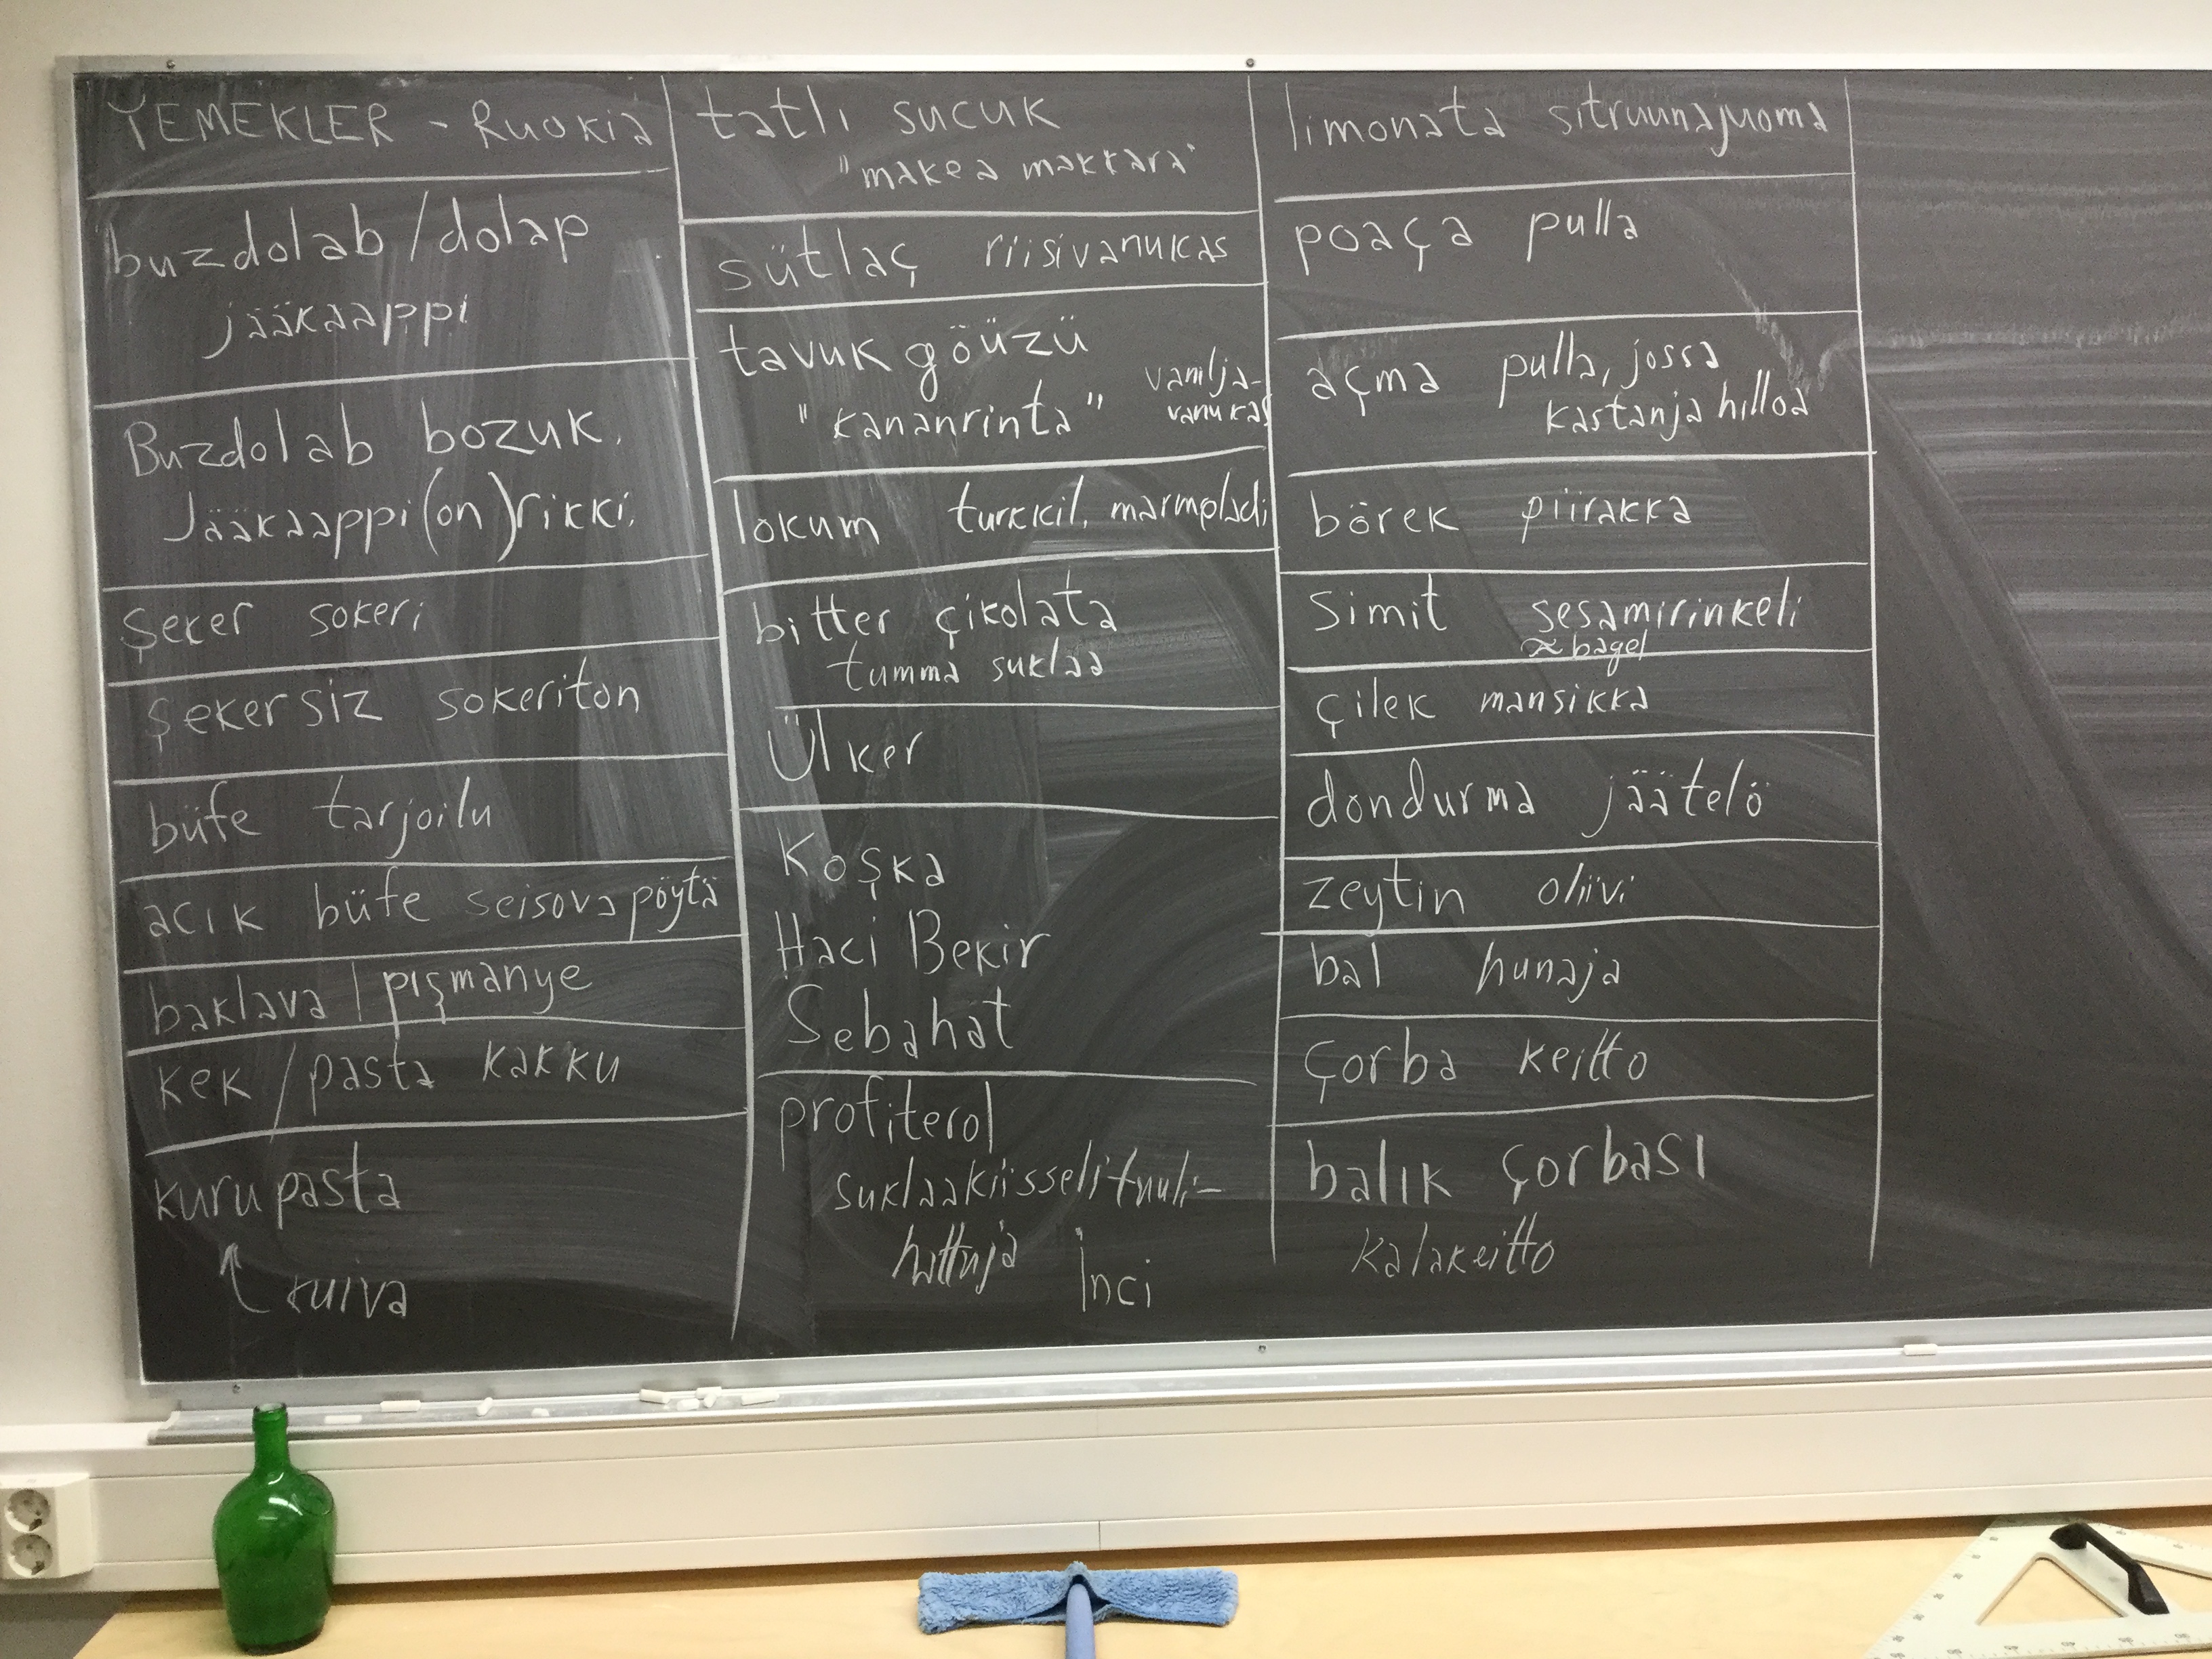 YEMEKLER - Ruokia
buzdolab/dolap
jääkaappi
Buzdolab bozuk.
Jääkaappi(on)rikki.
şeker sokeri
şekersiz sokeriton
büfe tarjoilu
acık büfe seisova pöytä
baklava | pişmanye
kek/pasta kakku
kuru pasta
↑ kuiva
tatlı sucuk
"makea makkara"
sütlaç riisivanukas
tavuk göüzü
"kananrinta" vanilja-
vanukas
lokum turkkil. marmeladi
bitter çikolata
tumma suklaa
Ülker
Koşka
Haci Bekir
Sebahat
profiterol
suklaakiisselituuli-
hattuja İnci
limonata sitruunajuoma
poaça pulla
açma pulla, jossa
kastanja hilloa
börek piirakka
simit sesamirinkeli
≈ bagel
çilek mansikka
dondurma jäätelö
zeytin oliivi
bal hunaja
çorba keitto
balık çorbası
kalakeitto